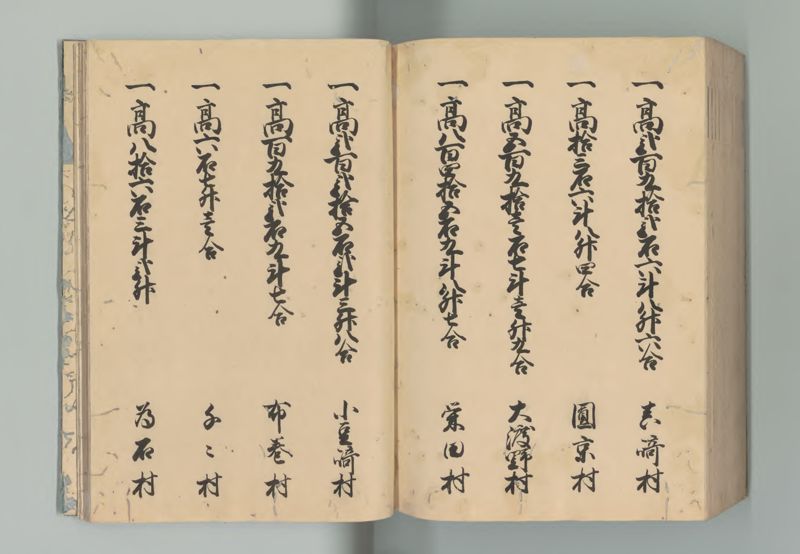 一高弐百九拾弐石六斗八升六合 真﨑村
一高拾三石六斗八升四合 圓京村
一高五百九拾壱石七斗壱升九合 大渡野村
一高八百四拾五石九斗八升七合 栄田村
一高弐百弐拾五石弐斗三升八合 小豆﨑村
一高百九拾弐石九斗七合 布巻村
一高六石七升壱合 村
一高八拾六石三斗弐升 為石村